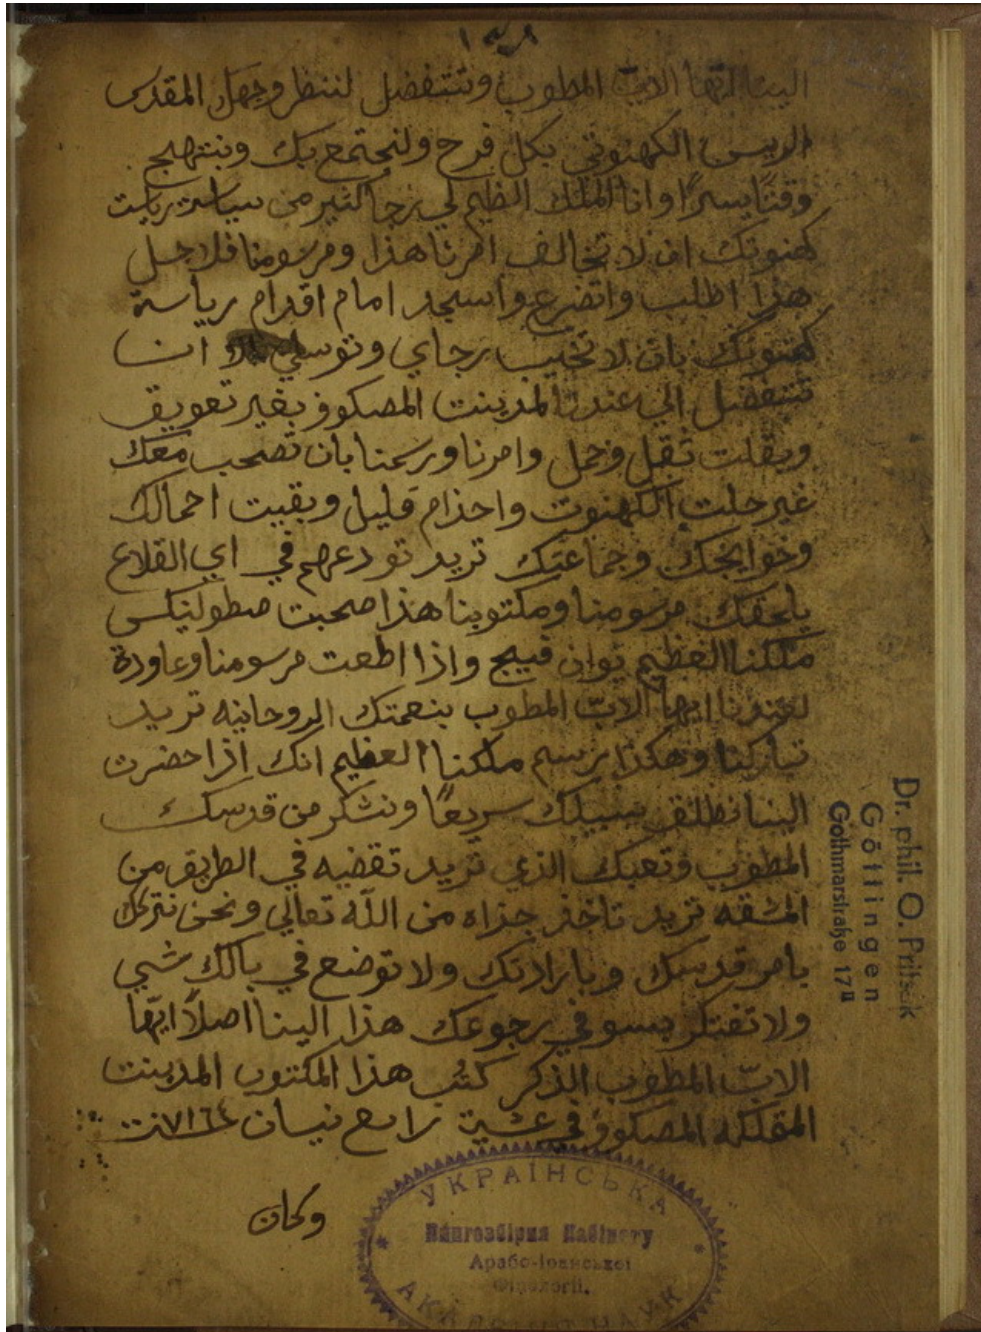 الينا ايها الابّ المطوب وتتفضل لننظر وجهك المقدس
الريس الكهنوتي بكل فرح ولنجتمع بك ونبتهج
وقتًا يسيرًا وانا الملك العظيم لي رجا كثير من سياسة رياست
كهنوتك ان لا تخالف امرنا هذا ومرسومنا فلاجل
هذا اطلب واتضرع واسجد امام اقدام رياسة
كهنوتك بان لا تخيب رجاي وتوسلي ان
تتفضل الي عندنا لمدينت المصكوف بغير تعويق
وبقلت ثقل وحمل وامرنا ورسمنا بان تصحب معك
غير حلت الكهنوت واخذام قليل وبقيت احمالك
وحوايجك وجماعتك تريد تودعهم في اي القلاع
يلحقك مرسومنا ومكتوبنا هذا صحبت صطولنيكس
ملكنا العظيم يوان فييج واذا اطعت مرسومنا وعاودة
لعندنا ايها الابّ المطوب بنعمتك الروحانيه تريد
تباركنا وهكذا يرسم ملكنا العظيم انك اذا حضرت
الينا نطلق سبيلك سريعًا ونشكر من قدسك
المطوب وتعبك الذي تريد تقضيه في الطريق من
المشقه تريد تاخذ جزاه من اللّه تعالي ونحن نتركك
بامر قدسك وبارادتك ولا توضع في بالك شيي
ولا تفتكر بسو في رجوعك هذا الينا اصلاً ايّها
الابّ المطوب الذكر كتب هذا المكتوب المدينت
المملكه المصكوف في عشية رابع نيسان ٧١٦٤
وكان
Dr. phil. O. Pritsak
Göttingen
Gothmarstraße 17 II
УКРАЇНСЬКА
Книгозбірня Кабінету
Арабо-Іранської
Філології.
АКАДЕМІЯ НАУК